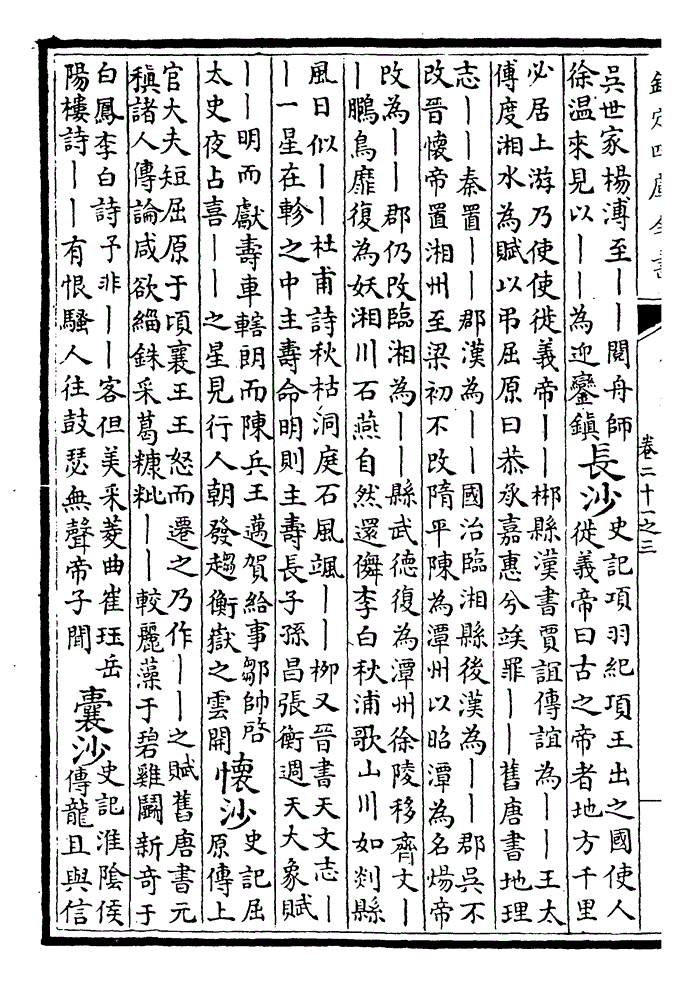 欽定四庫全書
卷二十一之三
吳世家楊溥至丨丨閱舟師
徐温來見以丨丨為迎鑾鎮
長沙
史記項羽紀項王出之國使人
徙義帝曰古之帝者地方千里
必居上游乃使使徙義帝丨丨郴縣漢書賈誼傳誼為丨丨王太
傅度湘水為賦以弔屈原曰恭承嘉惠兮竢罪丨丨舊唐書地理
志丨丨秦置丨丨郡漢為丨丨國治臨湘縣後漢為丨丨郡吳不
改晉懷帝置湘州至梁初不改隋平陳為潭州以昭潭為名煬帝
改為丨丨郡仍改臨湘為丨丨縣武德復為潭州徐陵移齊文丨
丨鵬鳥靡復為妖湘川石燕自然還儛李白秋浦歌山川如剡縣
風日似丨丨杜甫詩秋枯洞庭石風颯丨丨栁又晉書天文志丨
丨一星在軫之中主壽命明則主壽長子孫昌張衡週天大象賦
丨丨明而獻壽車轄朗而陳兵王邁賀給事鄒帥啓
太史夜占喜丨丨之星見行人朝發趨衡嶽之雲開
懷沙
史記屈
原傳上
官大夫短屈原于頃襄王王怒而遷之乃作丨丨之賦舊唐書元
稹諸人傳論咸欲緇銖采葛糠粃丨丨較麗藻于碧雞鬬新奇于
白鳳李白詩予非丨丨客但美采菱曲崔珏岳
陽樓詩丨丨有恨騷人往鼓瑟無聲帝子閒
囊沙
史記淮陰侯
傳龍且與信